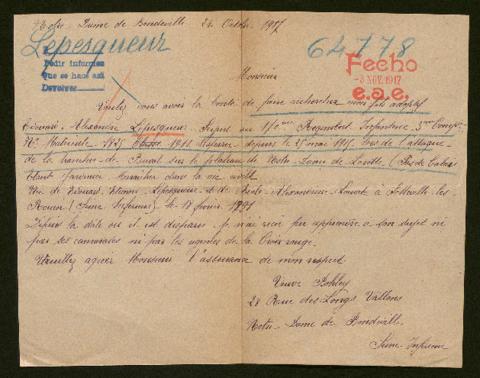 Notre Dame de Bondeville 24 Octobre 1917
Lepesqueur
64778
Pedir informes
Que se hace así
Devolver
Fecho
3 NOV. 1917
e.a.e.
Monsieur
Veuillez vous avoir la bonté de faire rechercher mon fils adoptif
Edouard Alexandre Lepesqueur Régiment Infanterie 3me Comp
No Matricule 1911 disparu depuis le 25 mai 1915 lors de l'attaque
de la de sur le plateau de Notre-Dame de Lorette (Pas de Calais)
Etant ouvrier dans la vie civile
Né de Edouard Etienne Lepesqueur et de Alexandrine à Sotteville les
Rouen (Seine Inférieure) le 18 février 1891
Depuis la date où il est disparu je n'ai rien pu apprendre à son sujet ni
par ses camarades ni par les agences de la Croix rouge.
Veuillez agréer Monsieur l'assurance de mon respect
Veuve
28 Rue des Longs Vallons
Notre-Dame de Bondeville
Seine Inférieure